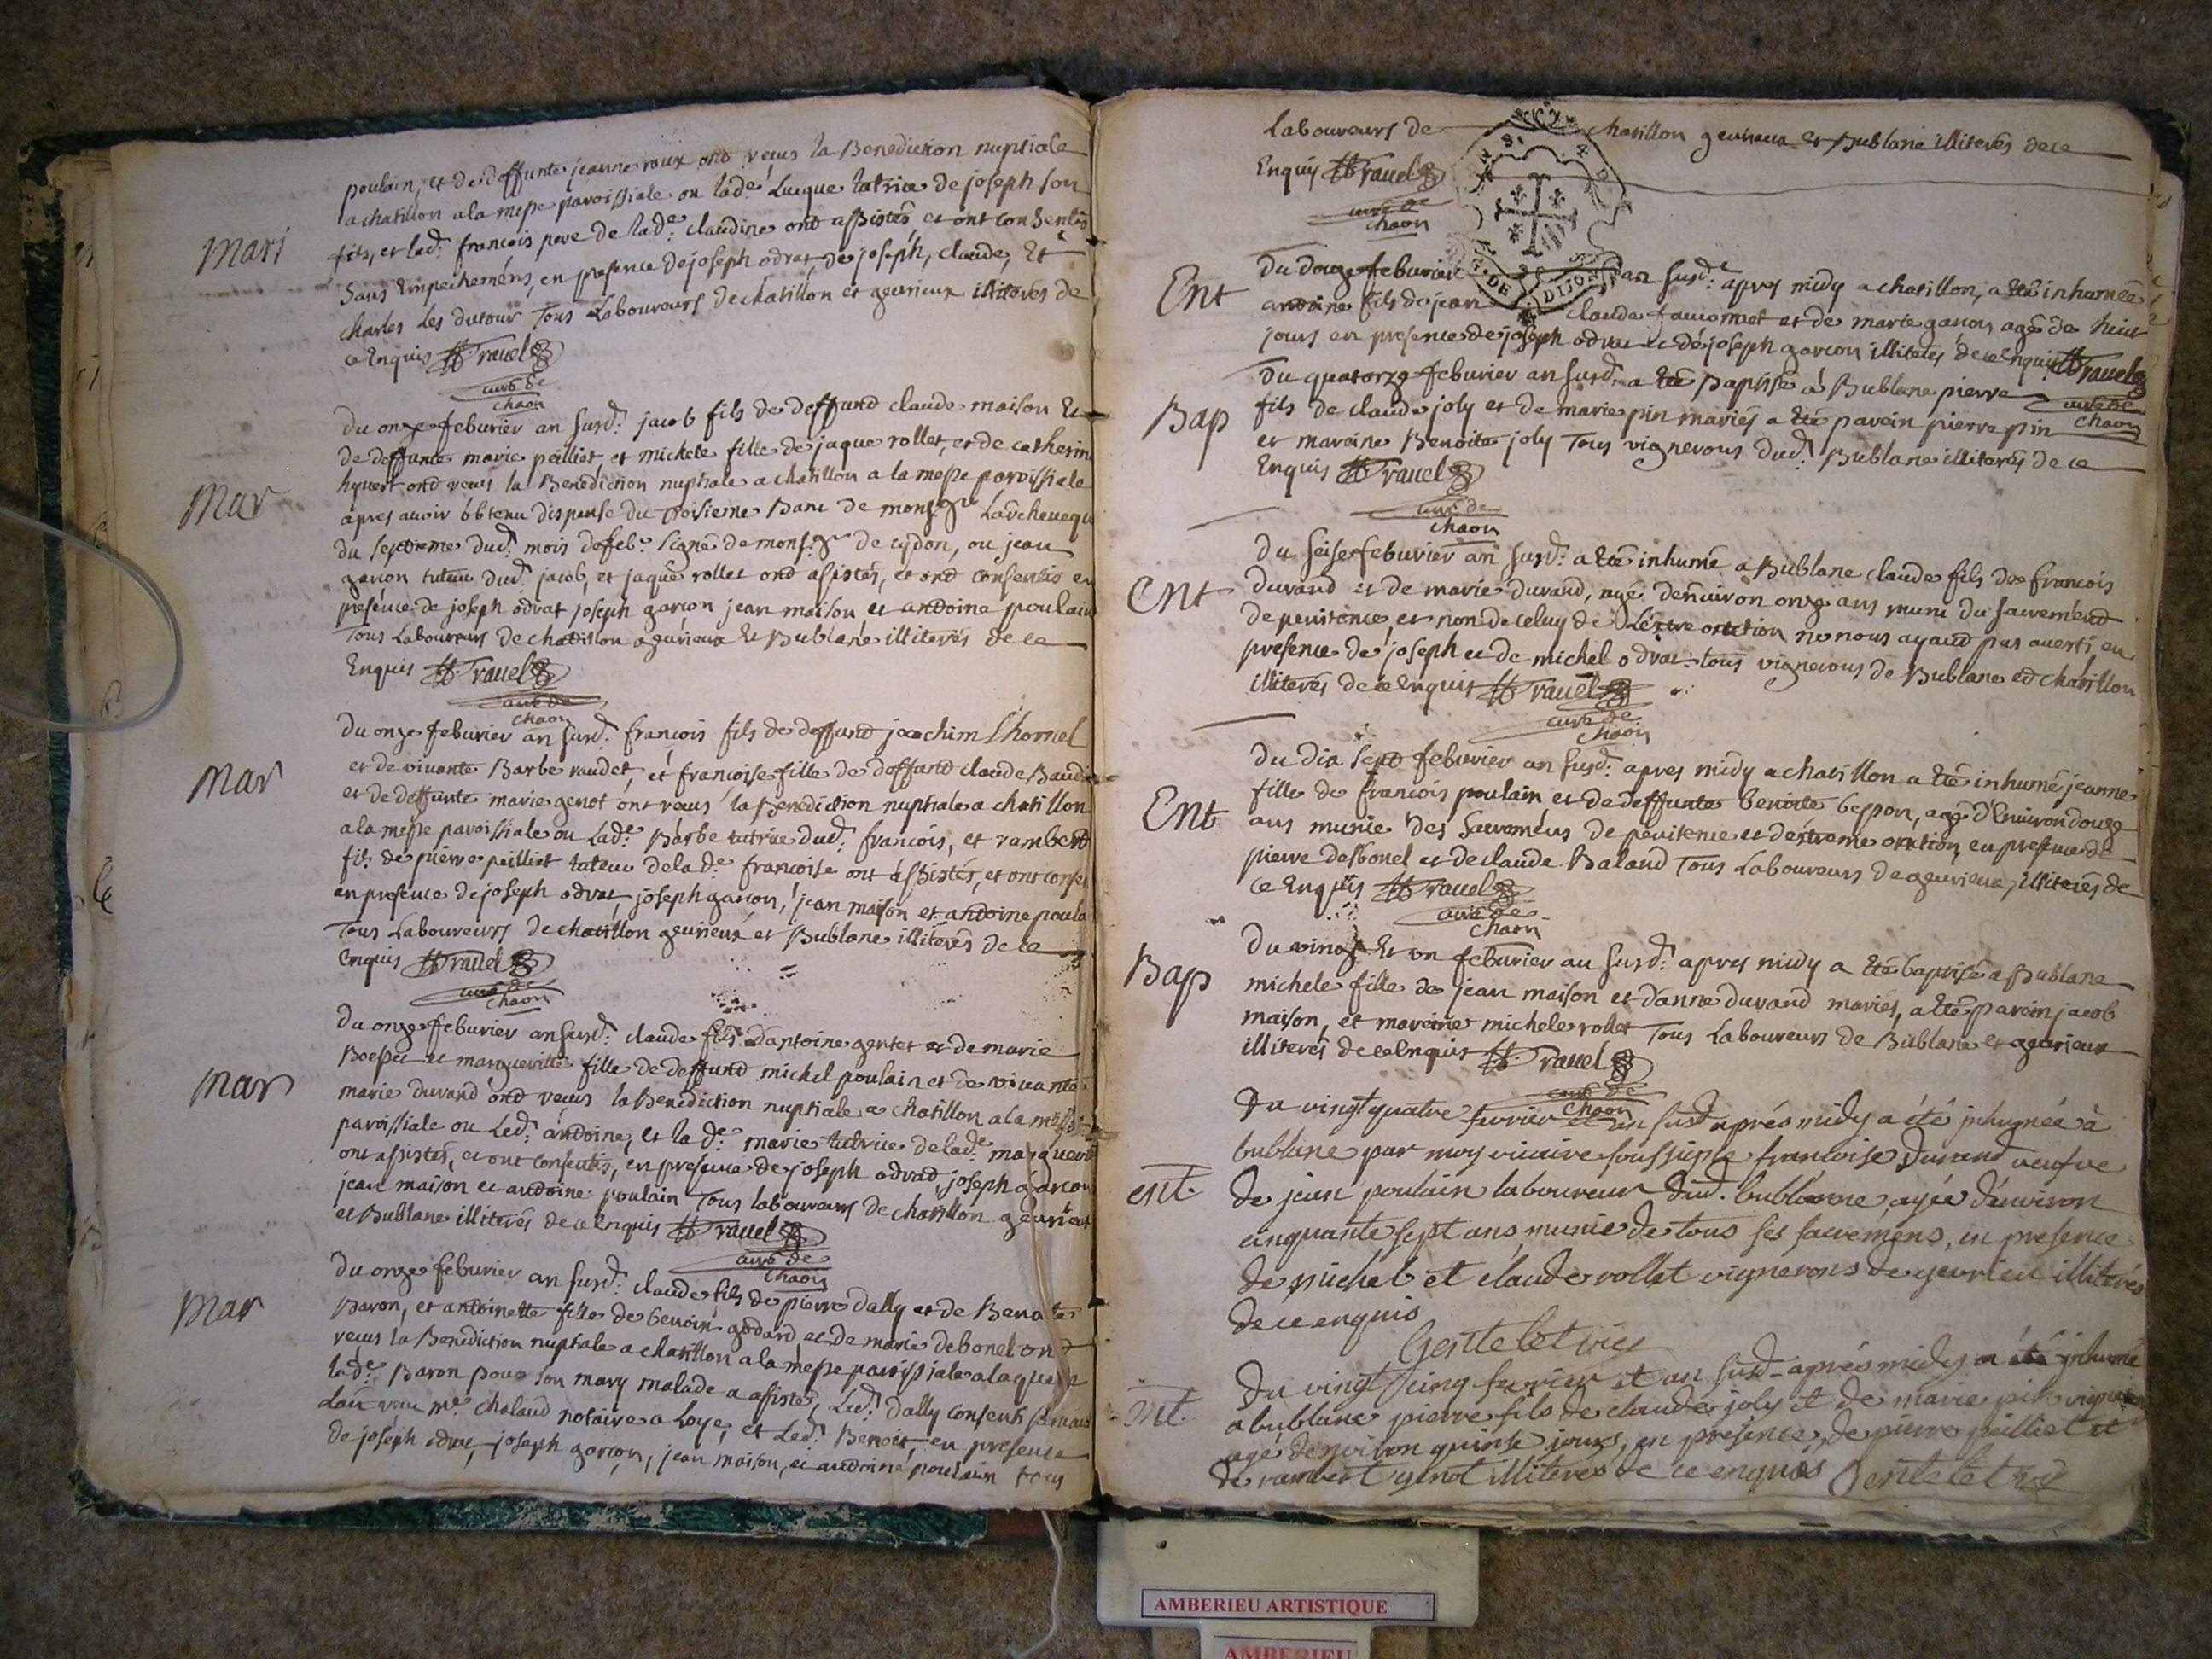 poulain, et de deffunte jeanne roux ont reçus la Benediction nuptiale
a chatillon a la messe paroissiale ou lade. Lucque tutrice de joseph son
fils, et led. francois pere de lade. claudine ont assistés, et ont consentis
Mari
sans Empechemens, en presence de joseph odrat, de joseph, claude, Et
charles Les dutour Tous Laboureurs de chatillon et gevrieux illiterés de
ce Enquis Ravel
curé de
chaon
du onze feburier an susd. jacob fils de deffund claude maison Et
de deffunte marie peilliet, et michele fille de jaque rollet, et de catherin
ond reçus la Benediction nuptiale a chatillon a la messe paroissiale
Mar
apres avoir obtenu dispense du troisieme Banc de monsgr L'archeveque
du septieme dud. mois de feb. signé de monsgr de sydon, ou jean
garcon tuteur dud. jacob, et jaque rollet ond assistés, et ond consentis en
presence de joseph odrat joseph garcon jean maison et andoine poulain
Tous Laboureurs de chatillon gevrieux Et Bublane illiterés de ce
Enquis Ravel
curé de
chaon
du onze feburier an susd. francois fils de deffund joachim Lhomel
et de vivante Barbe raudet, et francoise fille de deffund claude Baudi
Mar
et de deffunte marie genot ont reçus la Benediction nuptiale a chatillon
a la messe paroissiale ou Lade. Barbe tutrice dud. francois, et rambert
fils de pierre peilliet tuteur de lade. francoise ont assistés, et ont consen
en presence de joseph odrat joseph garcon, jean maison et andoine poula
Tous Laboureurs de chatillon gevrieux et Bublane illiterés de ce
Enquis Ravel
curé de
chaon
du onze feburier an susd. claude fils d'antoine gentet et de marie
et marguerithe fille de deffund michel poulain et de vivante
Mar
marie durand ond reçus la Benediction nuptiale a chatillon a la messe
paroissiale ou Led. andoine, et la de. marie tutrice de lade. marguerit
ont assistés, et ont consentis, en presence de joseph odrad, joseph garcon
jean maison et andoine poulain Tous laboureurs de chatillon gevrieux
et Bublane illiterés de ce Enquis Ravel
curé de
chaon
du onze feburier an susd. claude fils de pierre dally et de Benoite
Mar
Baron, et andoinette fille de benoit godard et de marie debonel ond
reçus la Benediction nuptiale a chatillon a la messe paroissiale a laquelle
lade. Baron pour son mary malade a assisté, Led. dally consenti
me. chaland notaire a Loye, et Led. Benoit, en presence
de joseph odrat, joseph garcon, jean maison, et andoine poulain tous
Laboureurs de chatillon gevrieux et Bublane illiterés de ce
Enquis Ravel
curé de
chaon
G. DE DIJON
Ent
du douze feburier an susd. apres midy a chatillon, a été inhumé
andoine fils de jean claude et de marie garcon agé de huit
jours en presence de joseph odrat et de joseph garcon illiterés de ce Enquis Ravel
curé de
chaon
du quatorze feburier an susd. a été Baptisé a Bublane pierre
Bap
fils de claude joly et de marie pin mariés a été parein pierre pin
et mareine Benoite joly Tous vignerons dud. Bublane illiterés de ce
Enquis Ravel
curé de
chaon
du seise feburier an susd. a été inhumé a Bublane claude fils de francois
Ent
durand et de marie durand, agé d'environ onze ans muni du sacremend
de penitence et non de celuy de L'extreme onction ne nous ayand pas averti en
presence de joseph et de michel odrat tous vignerons de Bublane ed chatillon
illiterés de ce Enquis Ravel
curé de
chaon
du dix sept feburier an susd. apres midy a chatillon a été inhumé jeanne
fille de francois poulain et de deffunte benoite besson, agé d'Environ douze
Ent
ans munie des sacremens de penitence et d'extreme onction, en presence de
pierre desbonel et de claude Baland Tous Laboureurs de gevrieux, illiterés de
ce Enquis Ravel
curé de
chaon
du vingt Et un feburier an susd. apres midy a été baptisé a Bublane
Bap
michele fille de jean maison et d'anne durand mariés, a été parein jacob
maison, et mareine michele rollet Tous Laboureurs de Bublane et gevrieux
illiterés de ce Enquis Ravel
curé de
chaon
Du vingt quatre fevrier et an susd. aprés midy a été inhumée à
bublane par moy vicaire soussigné francoise Durand veufve
ent
de jean poulain laboureur dud. bublanne, agée d'environ
cinquante sept ans munie de tous ses sacremens, en presence
de michel et claude rollet vignerons de gevrieu illiterés
de ce enquis
Gentelet vic
Du vingt cinq fevrier et an susd. aprés midy a été inhumé
ent
a bublane pierre fils de claude joly et de marie pin
agé d'environ quinse jours, en présence de pierre peilliet et
de rambert genot illiterés de ce enquis Gentelet vic
AMBERIEU ARTISTIQUE
AMBERIEU